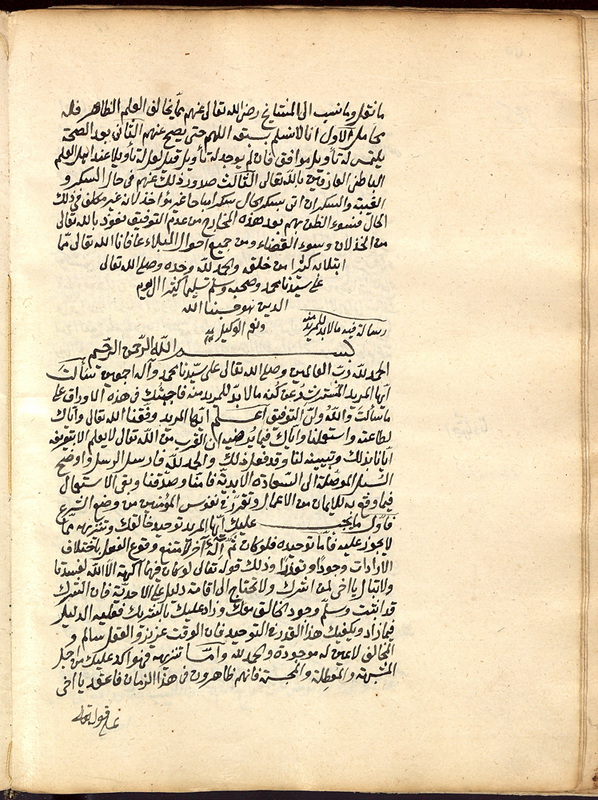 ما نقل وما نسب الى المشايخ رضي الله تعالى عنهم مما يخالف العلم الظاهر فله
محامل الاول انا لا نسلم نسبته اليهم حتى يصح عنهم الثاني بعد الصحة
يلتمس له تأويل موافق فان لم يوجد له تأويل قيل لعل له تأويلا عند اهل العلم
الباطن العارفين بالله تعالى الثالث صدور ذلك عنهم في حال السكر و
الغيبة والسكران اي سكر الحال سكرا مباحا غير مؤاخذ لانه غير مكلف في ذلك
الحال فسوء الظن بهم بعد هذه المخارج من عدم التوفيق نعوذ بالله تعالى
من الخذلان وسوء القضاء ومن جميع احوال البلاء عافانا الله تعالى مما
ابتلى به كثيرا من خلقه والحمد لله وحده وصلى الله تعالى
على سيدنا محمد وصحبه وسلم تسليما كثيرا الى يوم
الدين وهو حسبنا الله
ونعم الوكيل
رسالة فيه ما لا بد للمريد منه
بسم الله الرحمن الرحيم
الحمد لله رب العالمين وصلى الله تعالى على سيدنا محمد وآله اجمعين سألت
ايها المريد المسترشد عن كنه ما لا بد للمريد منه فاجبتك في هذه الاوراق على
ما سألت والله ولي التوفيق اعلم ايها المريد وفقنا الله تعالى واياك
لطاعته واستعملنا واياك فيما يرضيه ان القرب من الله تعالى لا يعلم الا بتعريفه
ايانا بذلك وتبيينه لنا وقد فعل ذلك والحمد لله فارسل الرسل واوضح
السبل الموصلة الى السعادة الابدية فآمنا وصدقنا وبقي الاستعمال
فيما وقع به الايمان من الاعمال وتقرر في نفوس المؤمنين من وضع الشرع
فاول ما يجب عليك ايها المريد توحيد خالقك وتنزيهه عما
لا يجوز عليه فاما توحيده فلو كان ثم اله آخر لامتنع وقوع الفعل باختلاف
الارادات وجودا وتقديرا وذلك قوله تعالى لو كان فيهما آلهة الا الله لفسدتا
ولا تبال يا اخي لمن اشرك ولا تحتاج الى اقامة دليل على الاحدية فان المشرك
قد اثبت وسلم وجود الخالق معك وزاد عليك بالشريك فعليه الدليل
فيما زاد ويكفيك هذا القدر في التوحيد فان الوقت عزيز والعقل سالم و
المخالف لا عين له موجودة والحمد لله واما تنزيهه فهو اكد عليك من اجل
المشبهة والمعطلة والمجسمة فانهم ظاهرون في هذا الزمان فاعقد يا اخي
على قوله تعالى